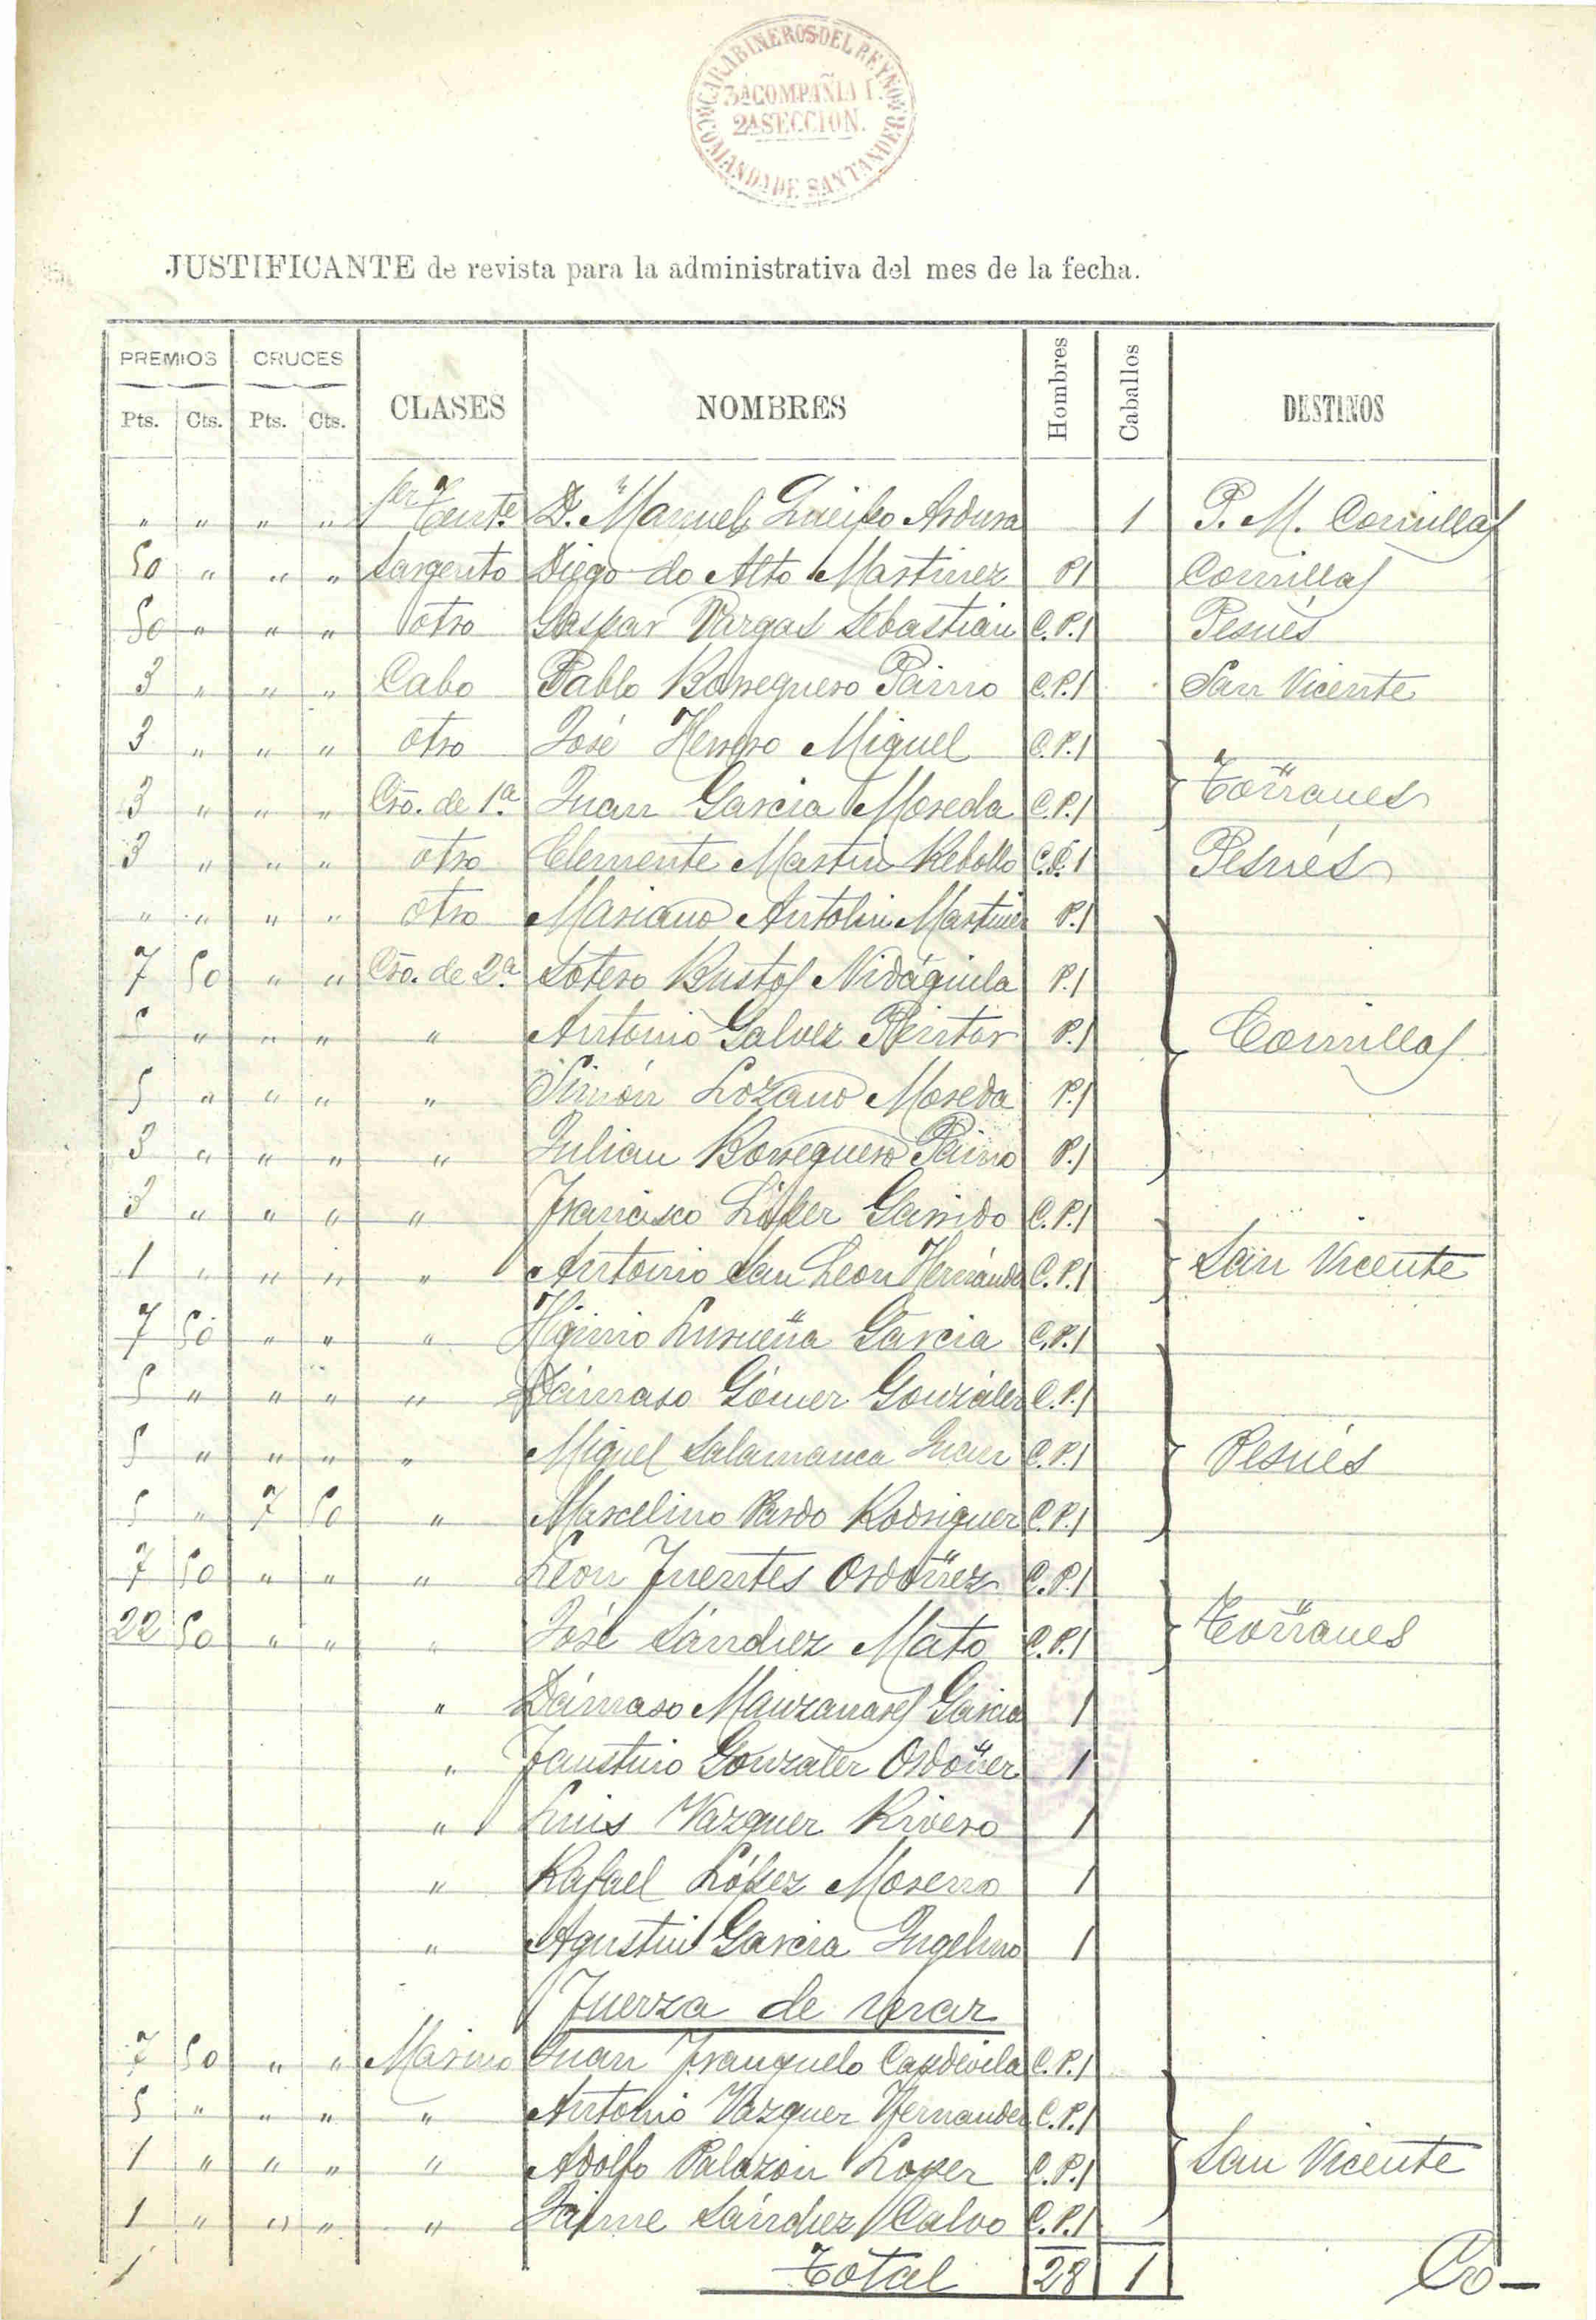 CARABINEROS DEL REYNO
3ª COMPAÑIA
2ª SECCION.
COMANDª DE SANTANDER
JUSTIFICANTE de revista para la administrativa del mes de la fecha.
PREMIOS CRUCES CLASES NOMBRES Hombres Caballos DESTINOS
Pts. Cts. Pts. Cts.
" " " " 1er Tente. D. Manuel Ardura 1 P. M. Comillas
50 " " " Sargento Diego do Alto Martinez P1 Comillas
50 " " " otro Gaspar Vargas Sebastián C.P.1 Pesués
3 " " " Cabo Pablo Borreguero Paino C.P.1 San Vicente
3 " " " otro José Herrero Miguel C.P.1
3 " " " Cro. de 1ª Juan Garcia Moreda C.P.1 Toñanes
3 " " " otro Clemente Martin Rebollo C.P.1 Pesués
" " " " otro Mariano Antolin Martinez P.1
7 50 " " Cro. de 2ª Sotero Bustos Nidáguila P.1
5 " " " " Antonio Galvez Pintor P.1 Comillas
5 " " " " Simón Lozano Moreda P.1
3 " " " " Julian Borreguero Paino P.1
3 " " " " Francisco López Garrido C.P.1
1 " " " " Antonio San Leon Hernández C.P.1 San Vicente
7 50 " " " Higinio Lurueña Garcia C.P.1
5 " " " " Dámaso Gómez González C.P.1
5 " " " " Miguel Salamanca Juan C.P.1 Pesués
5 " 7 50 " Marcelino Pardo Rodriguez C.P.1
7 50 " " " Leon Fuentes Ordoñez C.P.1
22 50 " " " José Sánchez Mato C.P.1 Toñanes
" Dámaso Manzanares Garcia 1
" Faustino Gonzalez Ordoñez 1
" Luis Vazquez Rivero 1
" Rafael López Moreno 1
" Agustin Garcia Ingelmo 1
Fuerza de mar
7 50 " " Marino Juan Franquelo Capdevila C.P.1
5 " " " " Antonio Vazquez Fernandez C.P.1
1 " " " " Adolfo Palazón Lopez C.P.1 San Vicente
1 " " " " Jaime Sánchez Calvo C.P.1
Total 28 1